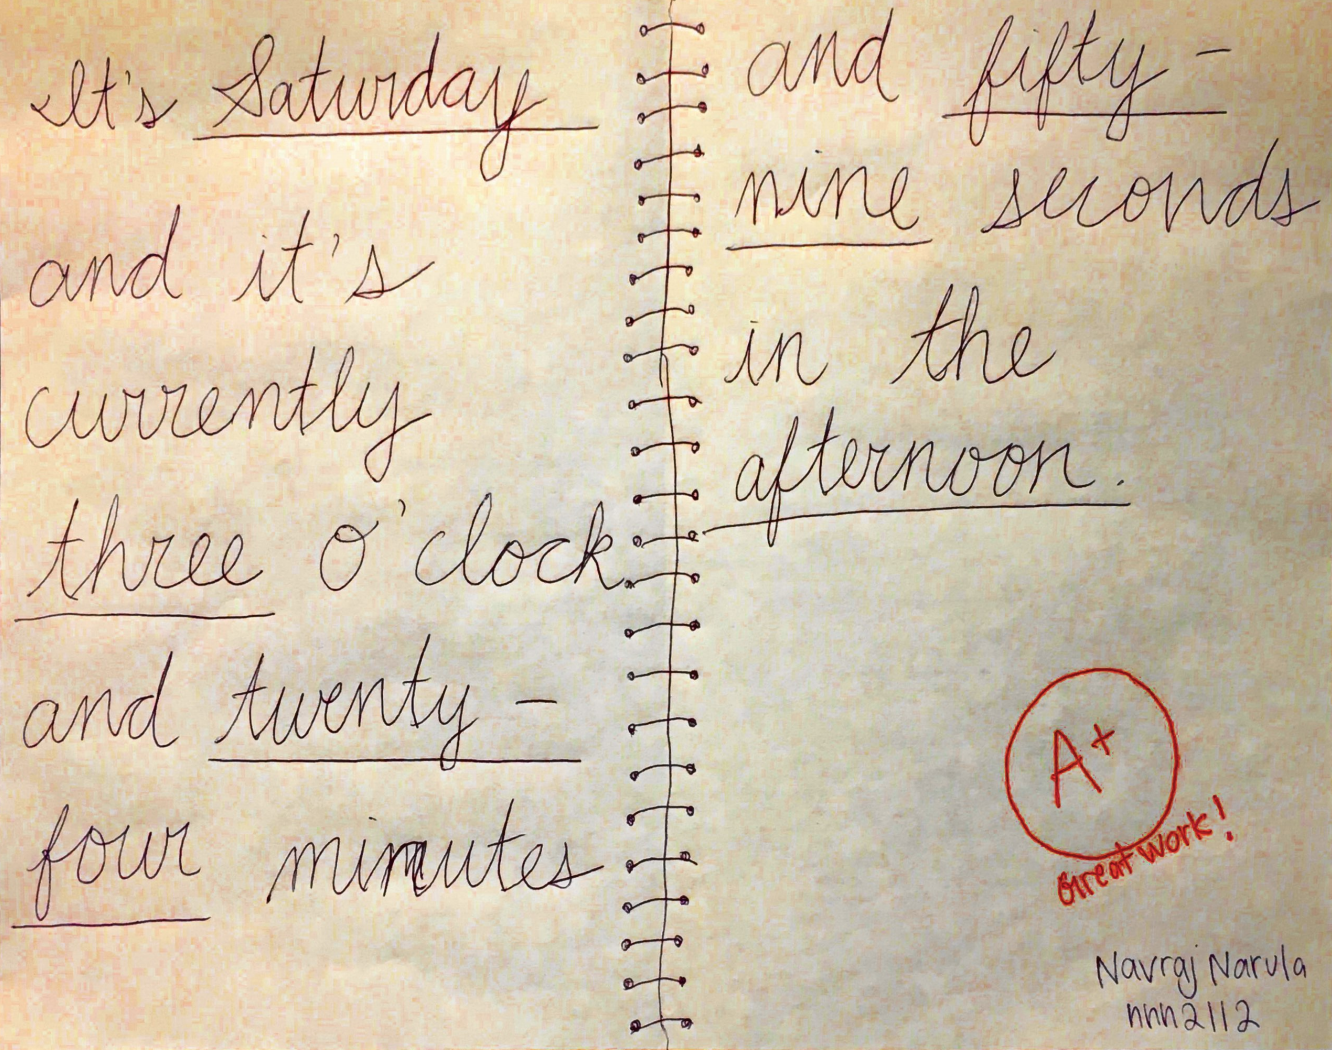 It's Saturday
and it's
currently
three o'clock
and twenty-
four minutes
and fifty-
nine seconds
in the
afternoon.
A+
Great work!
Navraj Narula
nnn2112